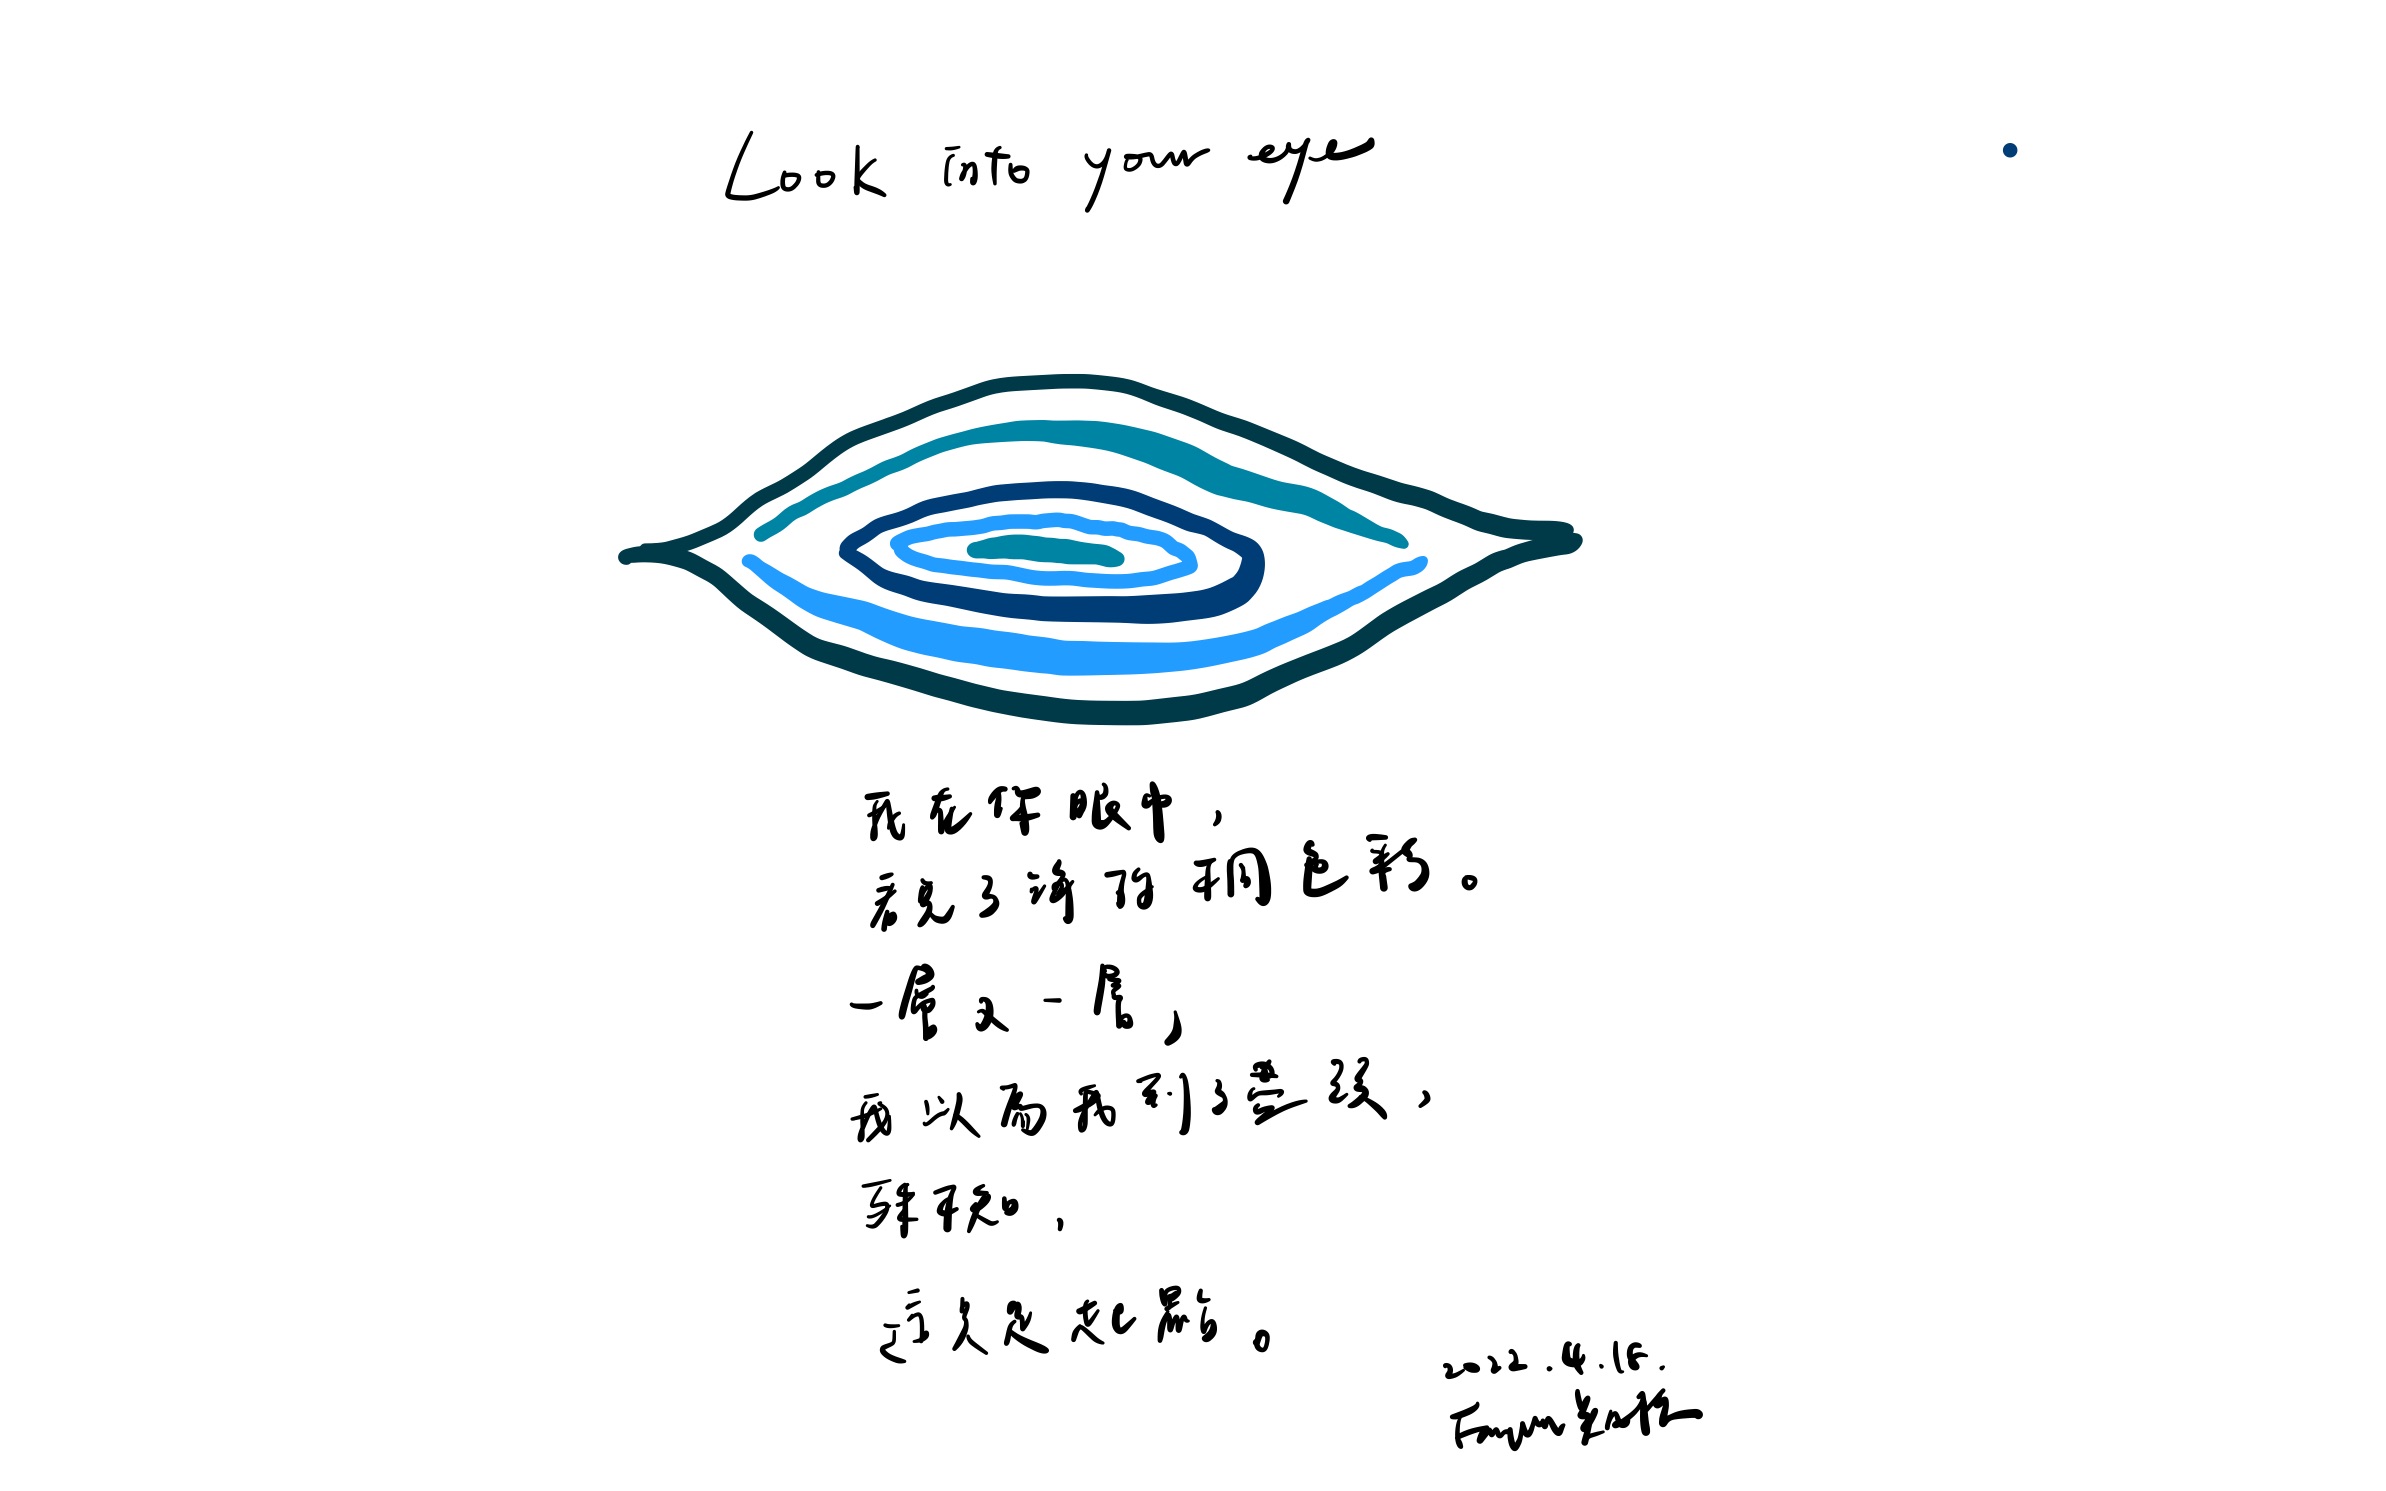 Look into your eye
我在你眼中，
看见了海的相色彩。
一层又一层，
我以为看到了尽头，
殊不知，
这只是起点。
2022.4.18.